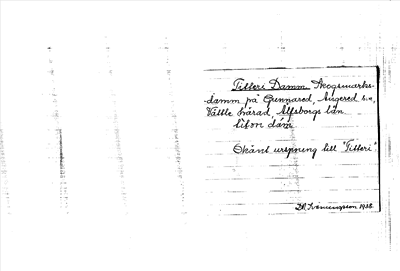 Titteri Damm Skogsmarks-
damm på Gunnared, Angered sn,
Vättle härad, Älfsborgs län.
liten dam.
Okänt urspning till "Titteri"
1938.